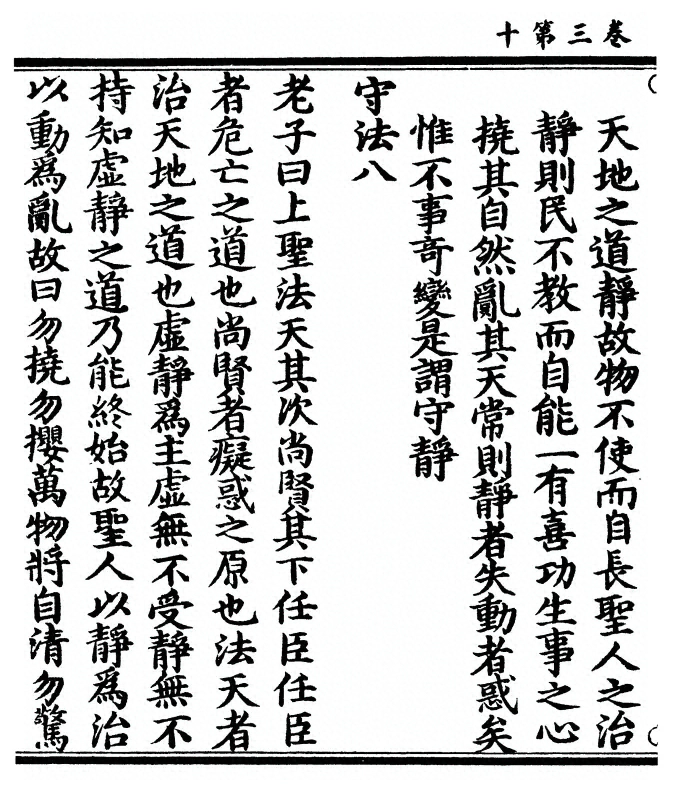 卷三第十
天地之道靜故物不使而自長聖人之治
靜則民不教而自能一有喜功生事之心
撓其自然亂其天常則靜者失動者惑矣
惟不事奇變是謂守靜
守法八
老子曰上聖法天其次尚賢其下任臣任臣
者危亡之道也尚賢者癡惑之原也法天者
治天地之道也虛靜爲主虛無不受靜無不
持知虛靜之道乃能終始故聖人以靜爲治
以動爲亂故曰勿撓勿攖萬物將自清勿驚